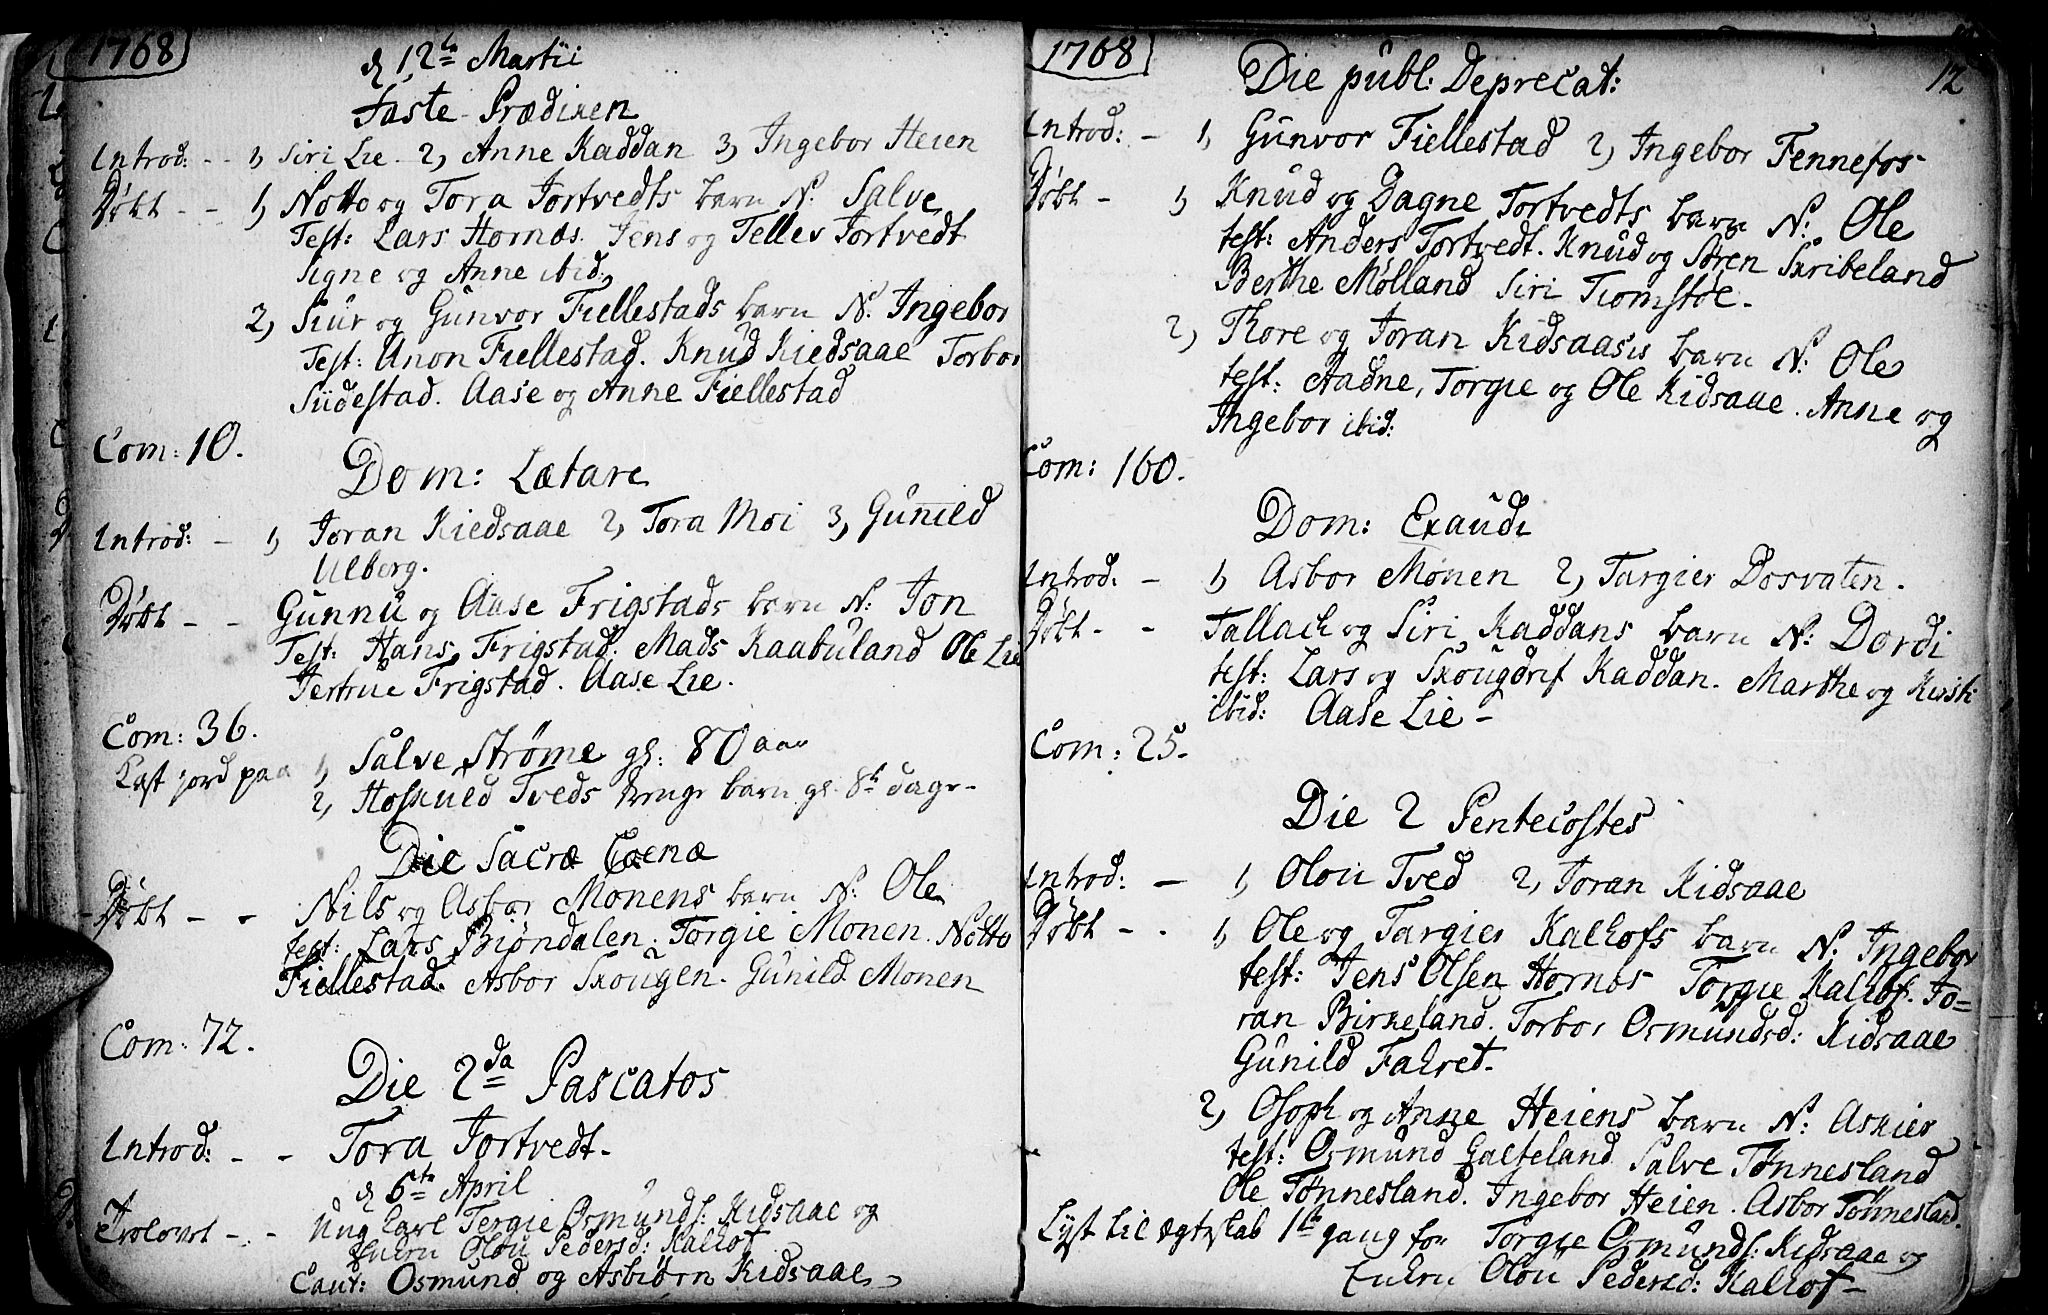 1768
d 12te Martii
Faste-Prædiken
Introd: - - 1, Siri Lie - 2, Anne Kaddan 3, Ingebor Heien
Døbt - - 1, Notto og Tora Tortvedts barn N: Salve
Test: Lars Hornes. Jens og Tellev Tortvedt
Signe og Anne ibid.
2, Siur og Gunvor Fiellestads barn N: Ingebor
Test: Unon Fiellestad. Knud Kiedsaae Torbor
Sudestad. Aase og Anne Fiellestad
Com: 10.
Dom: Lætare
Introd: - 1, Joran Kiedsaae 2, Tora Moi 3, Gunild
Ulberg.
Døbt - - Gunnu og Aase Frigstads barn N: Jon
Test: Hans Frigstad. Mads Kaabuland Ole Lie
Jertrue Frigstad. Aase Lie.
Com: 36.
Kast jord paa 1, Salve Strøme gl: 80 aar
2, Hoskuld Tveds drenge barn gl. 8te dage-
Die Sacræ Coenæ
Døbt - - Nils og Asbor Monens barn N: Ole
test: Lars Biøndalen. Torgie Monen. Notto
Fiellestad. Asbor Skougen. Gunild Monen
Com: 72.
Die 2da Pascatos
Introd: - - Tora Tortvedt-
d 6te April
Trolovet - - Ung karl Tergie Osmunds: Kidsaae og
Enken Olou Pedersd: Kalhof
Caut: Osmund og Asbiørn Kidsaae
1768
12
Die publ: Deprecat:
Introd: - 1, Gunvor Fiellestad 2, Ingebor Fennefos
Døbt - 1, Knud og Dagne Tortvedts barn N: Ole
test: Anders Tortvedt. Knud og Søren Skribeland
Berthe Mølland Siri Tiomstøe-
2, Thore og Joran Kidsaas barn N: Ole
test: Aadne, Torgie og Ole Kidsaae. Anne og
Ingebor ibid:
Com: 160.
Dom: Exaudi
Introd: - 1, Asbor Monen 2, Targier Dosvaten.
Døbt - - Tallack og Siri Kaddans barn N: Dordi
test: Lars og Skougdrif Kaddan. Marthe og Kirsti
ibid: Aase Lie-
Com: 25.
Die 2 Pentecostes
Introd: - 1, Olou Tved 2, Joran Kidsaae
Døbt - - 1, Ole og Targier Kalhofs barn N: Ingebor
test: Jens Olsen Hornes Torgie Kalhof. Jo=
ran Birkeland. Torbor Osmundsd: Kidsaae
Gunild Falret-
2, Osoph og Anne Heiens barn N: Askier
test: Osmund Galteland Salve Tønnesland
Ole Tønnesland. Ingebor Heien. Asbor Tønnesland.
Lyst til ægteskab 1te gang for Torgie Osmunds: Kidsaae og
Enken Olou Pedersd: Kalhof-